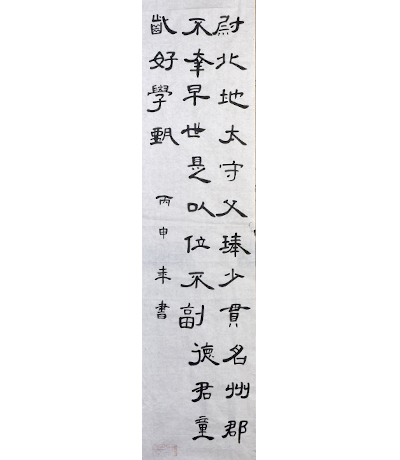 尉北地太守父琫少貫名州郡
不幸早世是以位不副德君童
齔好學甄
丙申年書